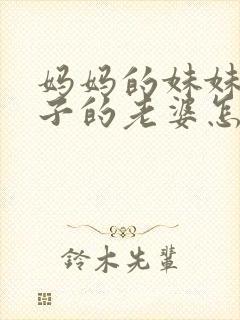 妈妈的妹妹
子的老婆怎
铃木先辈